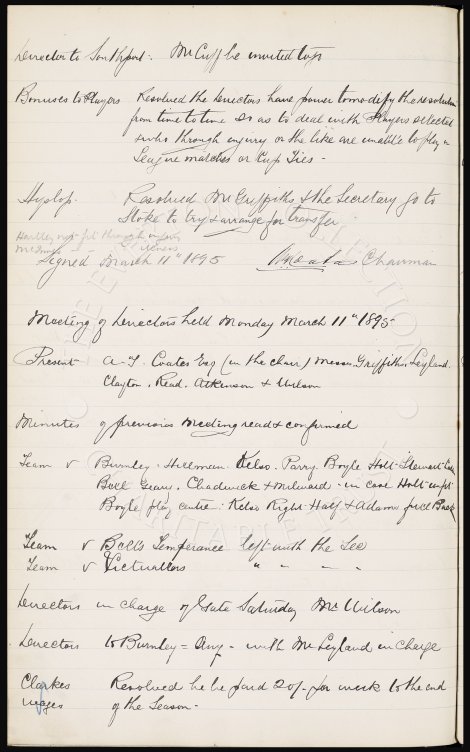 Director to Southport. Mr Cuff be invited to go
Bonuses to Players Resolved the Directors have power to modify the resolution
from time to time so as to deal with Players selected
& who through injury or the like are unable to play in
League matches or Cup Ties -
Hyslop. Resolved Mr Griffiths & the Secretary go to
Stoke to try & arrange for transfer
Hartley not fit through
Signed March 11th 1895 Chairman
Meeting of Directors held Monday March 11th 1895
Present A. T. Coates Esq (in the chair) Messrs Griffiths, Leyland.
Clayton. Read. Atkinson & Wilson
Minutes of previous Meeting read & confirmed
Team v Burnley - Hillman. Kelso. Parry. Boyle Holt. Stewart
Bell Geary. Chadwick & Milward - in case Holt unfit
Boyle play centre. Kelso Right Half & Adams full Back
Team v Bell's Temperance left with the Sec
Team v Victuallers " - - -
Directors in charge of Gate Saturday Mr Wilson
Directors to Burnley = Any - with Mr Leyland in charge
Clarkes Resolved he be paid 20/- per week to the end
wages of the Season -